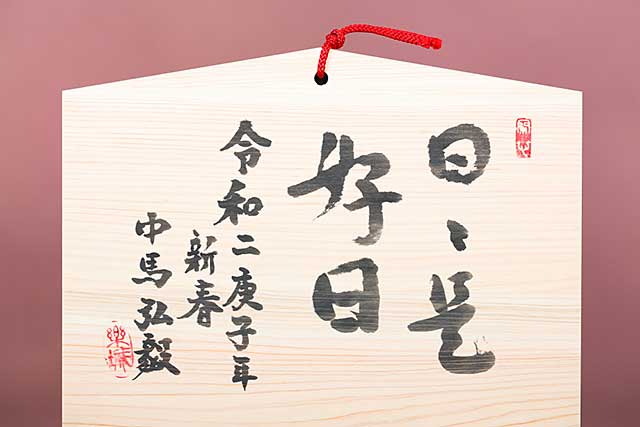 日々是
好日
令和二庚子年
新春
中馬弘毅